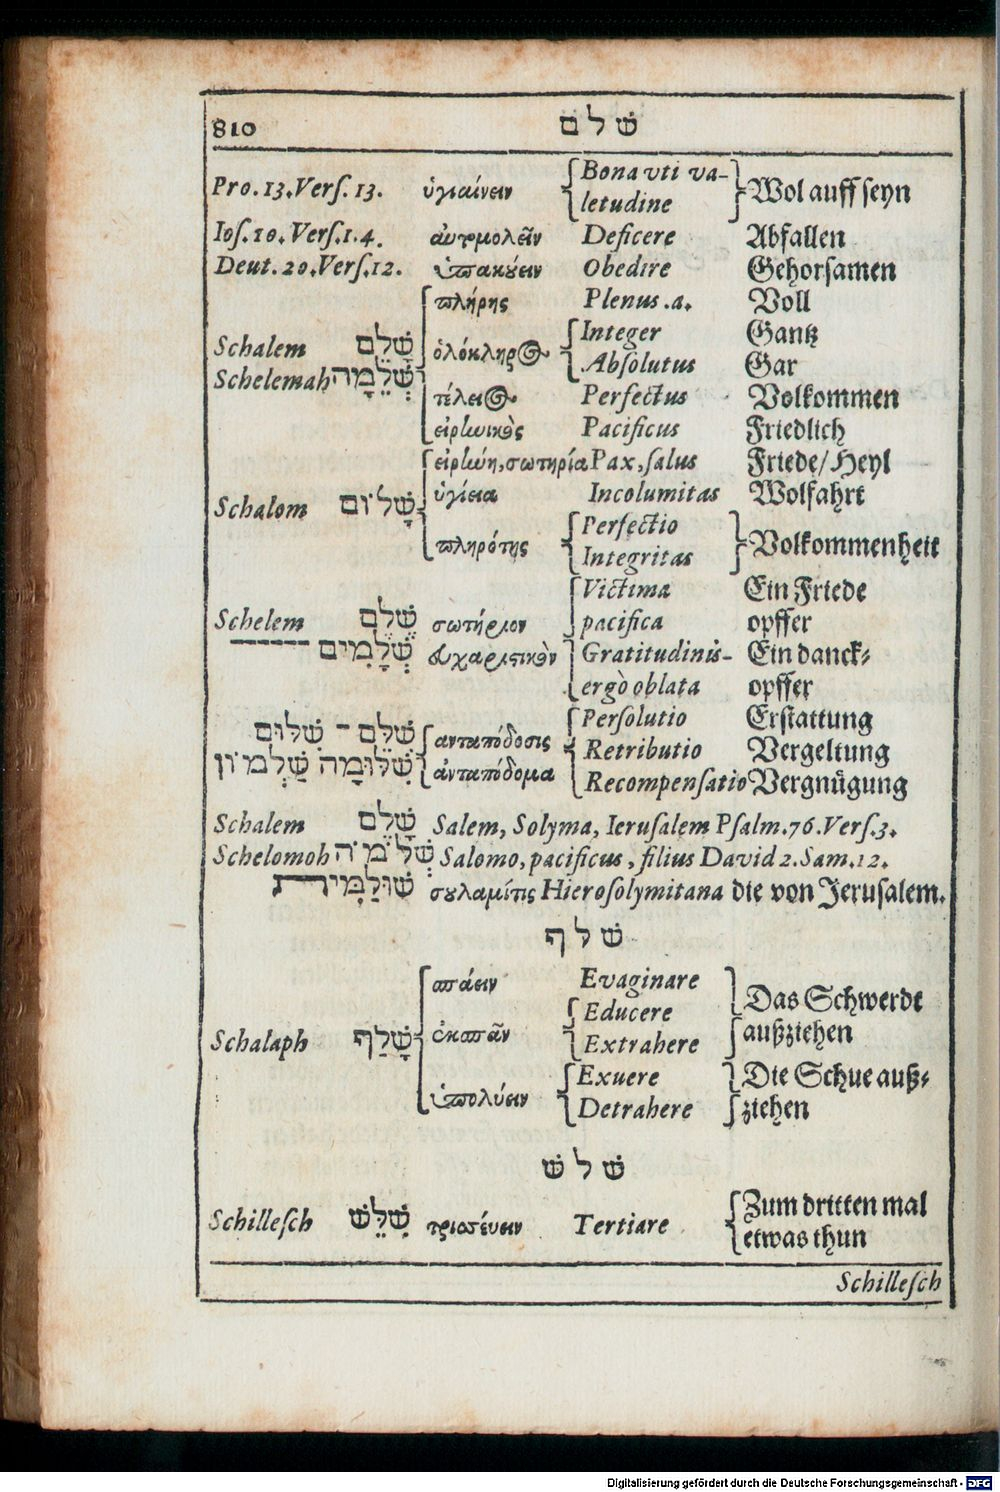 810 שׁלם
Pro.13.Verſ.13. ὑγιαίνειν Bona vti va-
letudine Wol auff ſeyn
Ioſ.10.Verſ.1.4. αυτομολεῖν Deficere Abfallen
Deut.20.Verſ.12. ὑπακούειν Obedire Gehorſamen
πλήρης Plenus.a. Voll
Schalem שָׁלֵם ὁλόκληρος Integer Gantz
Abſolutus Gar
Schelemah שְׁלֵמָה τέλειος Perfectus Volkommen
εἰρηνικὸς Pacificus Friedlich
εἰρήνη, σωτηρία Pax, ſalus Friede/Heyl
Schalom שָׁלוֹם ὑγίεια Incolumitas Wolfahrt
πληρότης Perfectio
Integritas Volkommenheit
Victima Ein Friede
Schelem שֶׁלֶם σωτήριον pacifica opffer
שְׁלָמִים εὐχαριστικὸν Gratitudinis- Ein danck⸗
ergò oblata opffer
Perſolutio Erſtattung
שִׁלֵּם - שִׁלּוּם ανταπόδοσις Retributio Vergeltung
שִׁלּוּמָה שַׁלְמוֹן ἀνταπόδομα Recompenſatio Vergnügung
Schalem שָׁלֵם Salem, Solyma, Ieruſalem Pſalm.76.Verſ.3.
Schelomoh שְׁלֹמֹה Salomo, pacificus, filius David 2.Sam.12.
שׁוּלַמִּית σουλαμίτις Hieroſolymitana die von Jeruſalem.
שׁלף
σπάειν Evaginare Das Schwerdt
Schalaph שָׁלַף ἐκσπᾶν Educere
Extrahere außziehen
ὑπολύειν Exuere Die Schue auß⸗
Detrahere ziehen
שׁלשׁ
Schilleſch שִׁלֵּשׁ τρισσέυειν Tertiare Zum dritten mal
etwas thun
Schilleſch
Digitalisierung gefördert durch die Deutsche Forschungsgemeinschaft - DFG